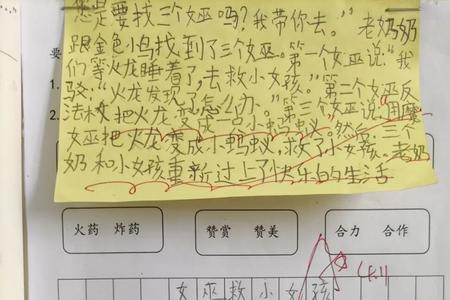 您是要找三个女巫吗？我带你去。”老奶奶
跟金色小鸟找到了三个女巫。第一个女巫说“我
们等火龙睡着了，去救小女孩。”第二个女巫反
驳：“火龙发现了怎么办。”第三个女巫说：“用魔
法棒把火龙变成小蚂蚁。”然后，三个
女巫把火龙变成小蚂蚁，救了小女孩。老奶
奶和小女孩重新过上了快乐的生活
要
1.
2.
火药 炸药
赞赏 赞美
合力 合作
女巫救小女孩